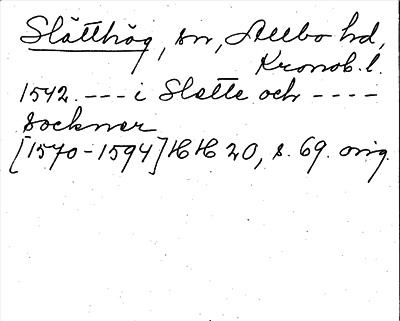 Slätthög, sn, Allbo hd,
Kronob. l.
1542. --- i Slette och ----
Sockner
[1570-1594] HH 20, s. 69. orig.